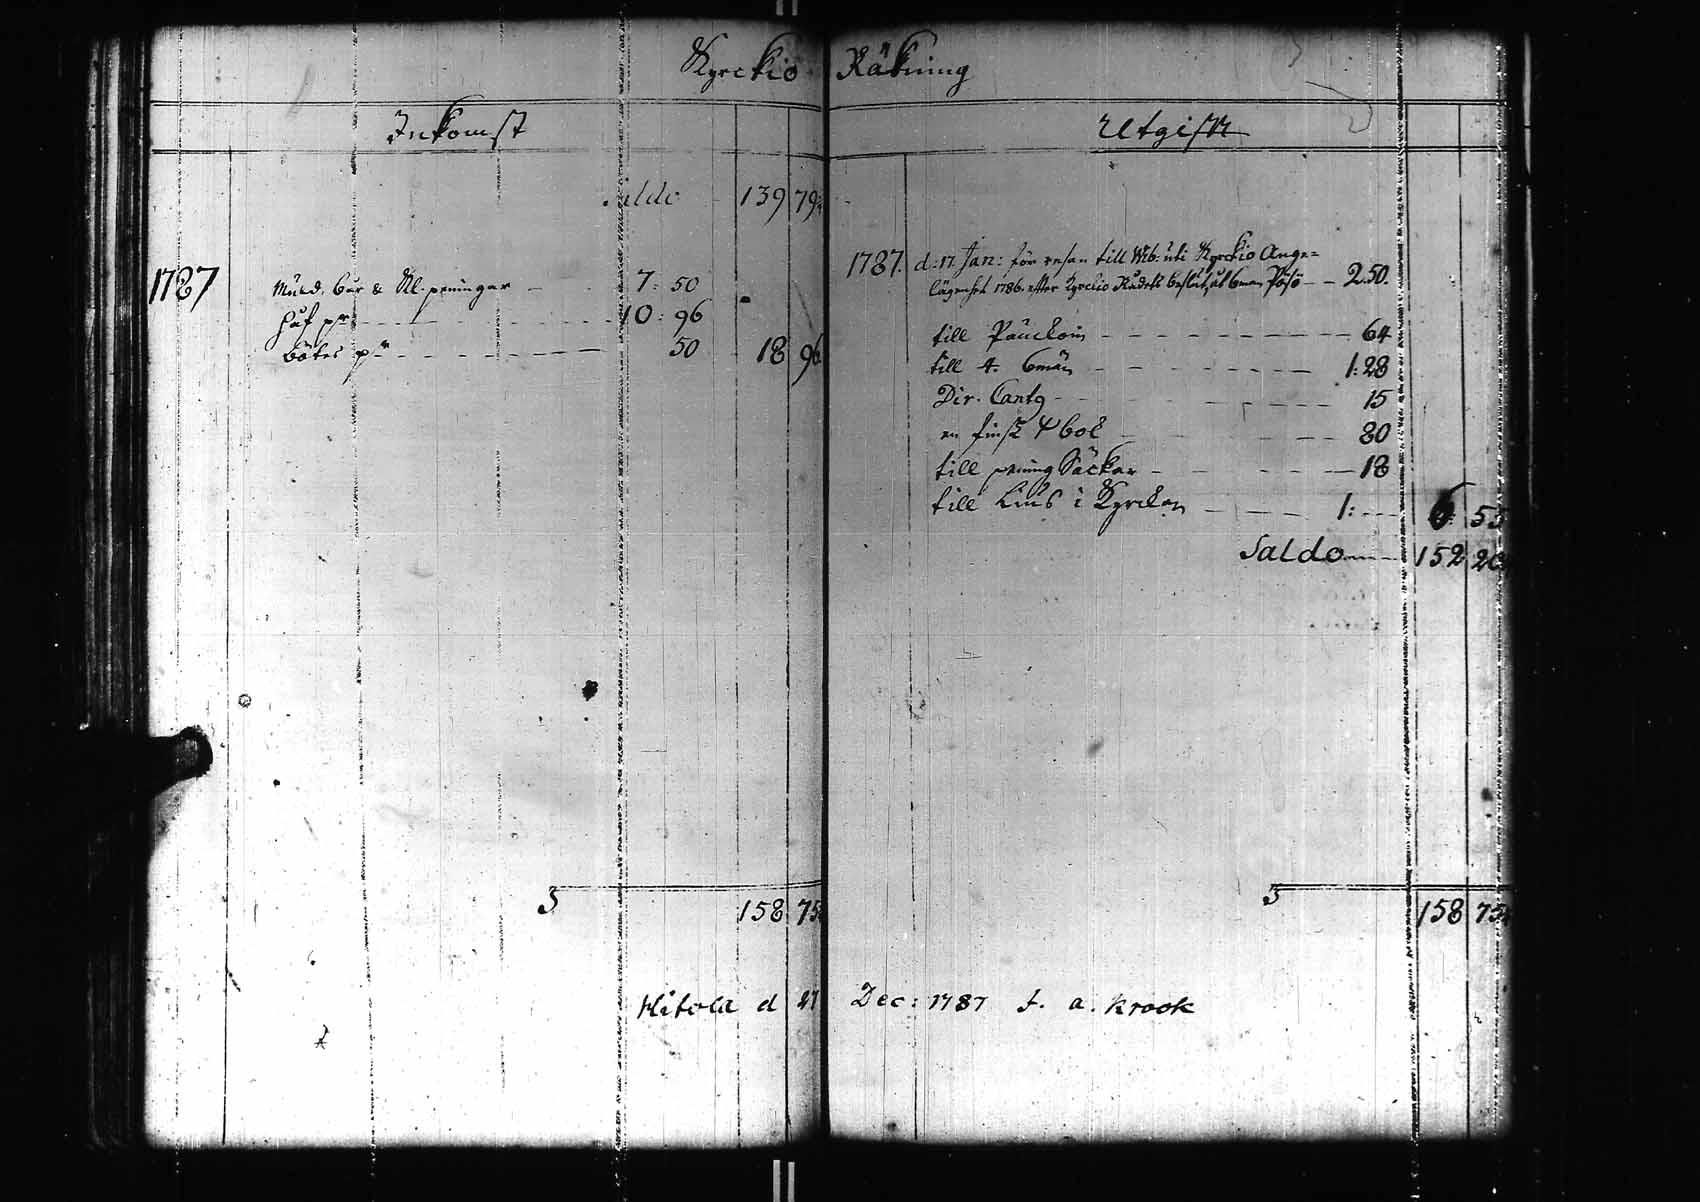 Kyrckio Räkning
Inkomst
Saldo 139 79
1787
Mull, bår & Kl. peningar 7: 50
Håf pr 10: 96
böter pr 50 18 96
S 158 75
Utgifft
1787. d: 17 Jan: för resan till Wib: uti Kyrckio Ange=
lägenhet 1786. efter Kyrckio Rådets beslut, at 6man Pösö 2.50.
till 64
till 4. 6män 1:28
Dir. Cant 15
en finsk bok 80
till pening Säckar 18
till Lius i Kyrckan 1: 6 55
Saldo 152 20
S 158 75
Hitola d 27 Dec: 1787 J. A. Krook